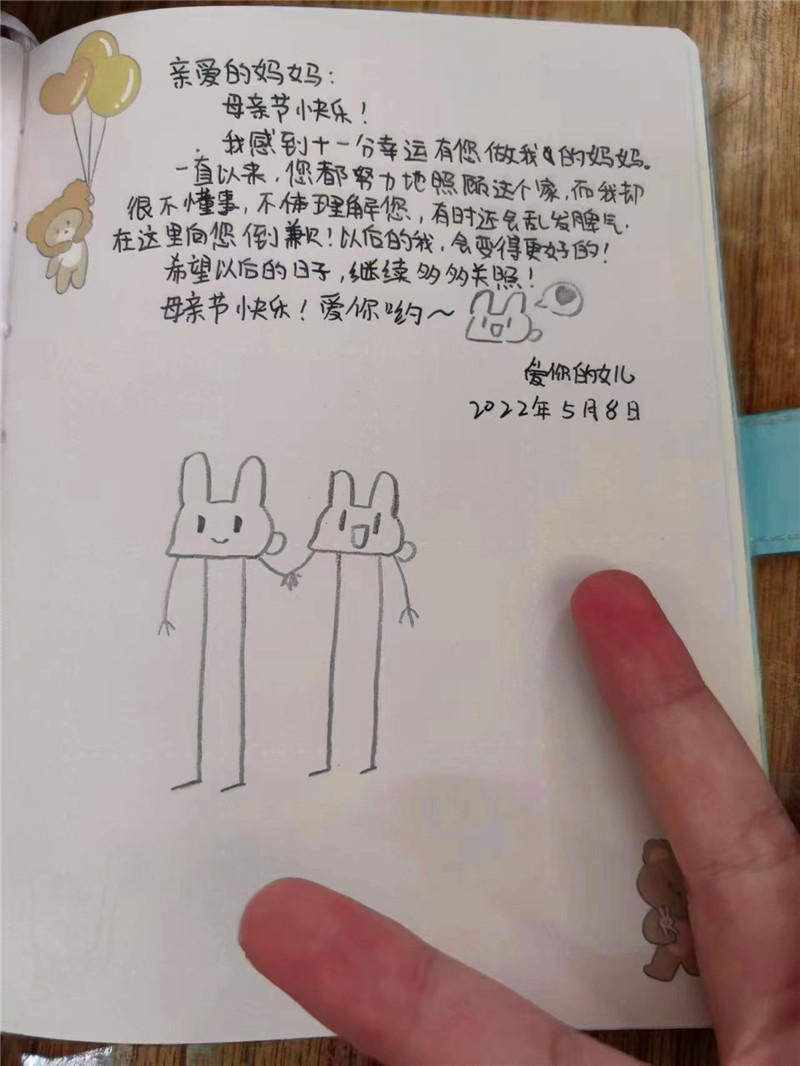 亲爱的妈妈:
母亲节快乐!
我感到十一分幸运有您做我的妈妈。
一直以来,您都努力地照顾这个家,而我却
很不懂事,不体理解您,有时还会乱发脾气.
在这里向您倒歉!以后的我,会变得更好的!
希望以后的日子,继续多多关照!
母亲节快乐!爱你哟~
爱你的女儿
2022年5月8日